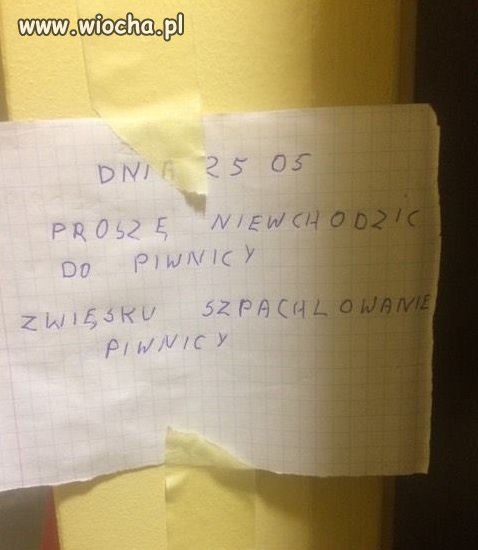 www.wiocha.pl
DNIA 25 05
PROSZĘ NIEWCHODZIC
DO PIWNICY
ZWIĘSKU SZPACHLOWANIE
PIWNICY